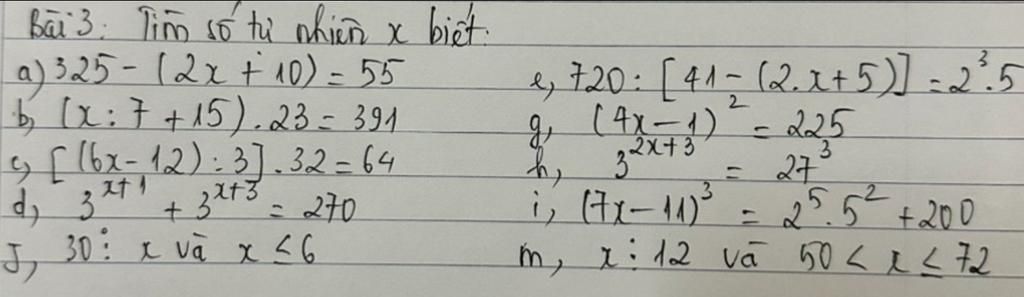 Bài 3: Tìm số tự nhiên x biết:
a) 325 - (2x + 10) = 55
e, 720 : [41 - (2.x + 5)] = 2³.5
b, (x : 7 + 15) . 23 = 391
g, (4x - 1)² = 225
c, [(6x - 12) : 3] . 32 = 64
h, 3^{2x+3} = 27³
d, 3^{x+1} + 3^{x+3} = 270
i, (7x - 11)³ = 2⁵.5² + 200
J, 30 ⋮ x và x ≤ 6
m, x ⋮ 12 và 50 < x ≤ 72